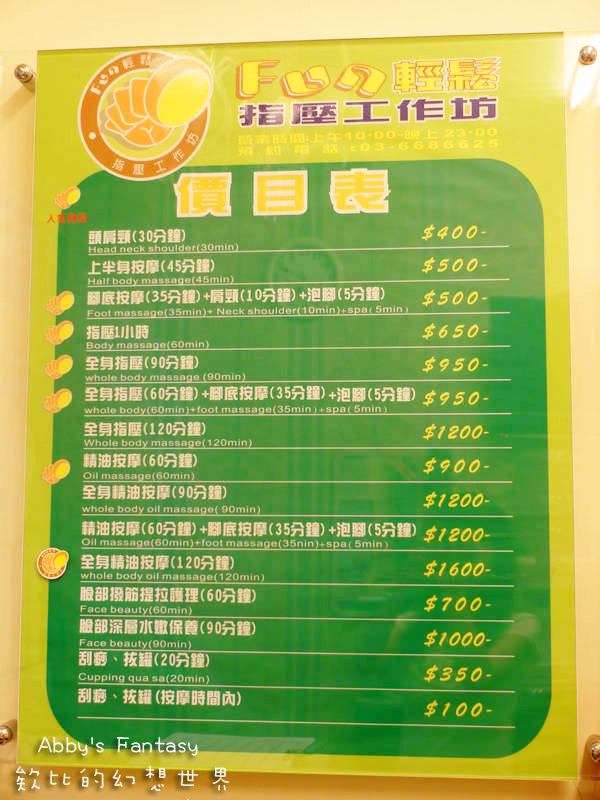 Fun輕鬆
指壓工作坊
Fun輕鬆
指壓工作坊
營業時間:上午10:00-晚上23:00
預約電話:03-6686625
價目表
頭肩頸(30分鐘) $400-
Head neck shoulder(30min)
上半身按摩(45分鐘) $500-
Half body massage(45min)
腳底按摩(35分鐘)+肩頸(10分鐘)+泡腳(5分鐘) $500-
Foot massage(35min)+ Neck shoulder(10min)+spa(5min)
指壓1小時 $650-
Body massage(60min)
全身指壓(90分鐘) $950-
whole body massage (90min)
全身指壓(60分鐘)+腳底按摩(35分鐘)+泡腳(5分鐘) $950-
whole body(60min)+foot massage(35min)+spa(5min)
全身指壓(120分鐘) $1200-
Whole body massage(120min)
精油按摩(60分鐘) $900-
Oil massage(60min)
全身精油按摩(90分鐘) $1200-
whole body oil massage(90min)
精油按摩(60分鐘)+腳底按摩(35分鐘)+泡腳(5分鐘) $1200-
Oil massage(60min)+foot massage(35nin)+spa(5min)
全身精油按摩(120分鐘) $1600-
whole body oil massage(120min)
臉部撥筋提拉護理(60分鐘) $700-
Face beauty(60min)
臉部深層水嫩保養(90分鐘) $1000-
Face beauty(90min)
刮痧、拔罐(20分鐘) $350-
Cupping qua sa(20min)
刮痧、拔罐(按摩時間內) $100-
Abby's Fantasy
欸比的幻想世界